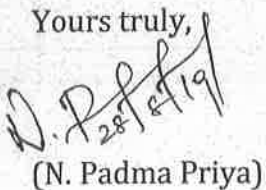 Yours truly,
N. P
28/8/19
(N. Padma Priya)